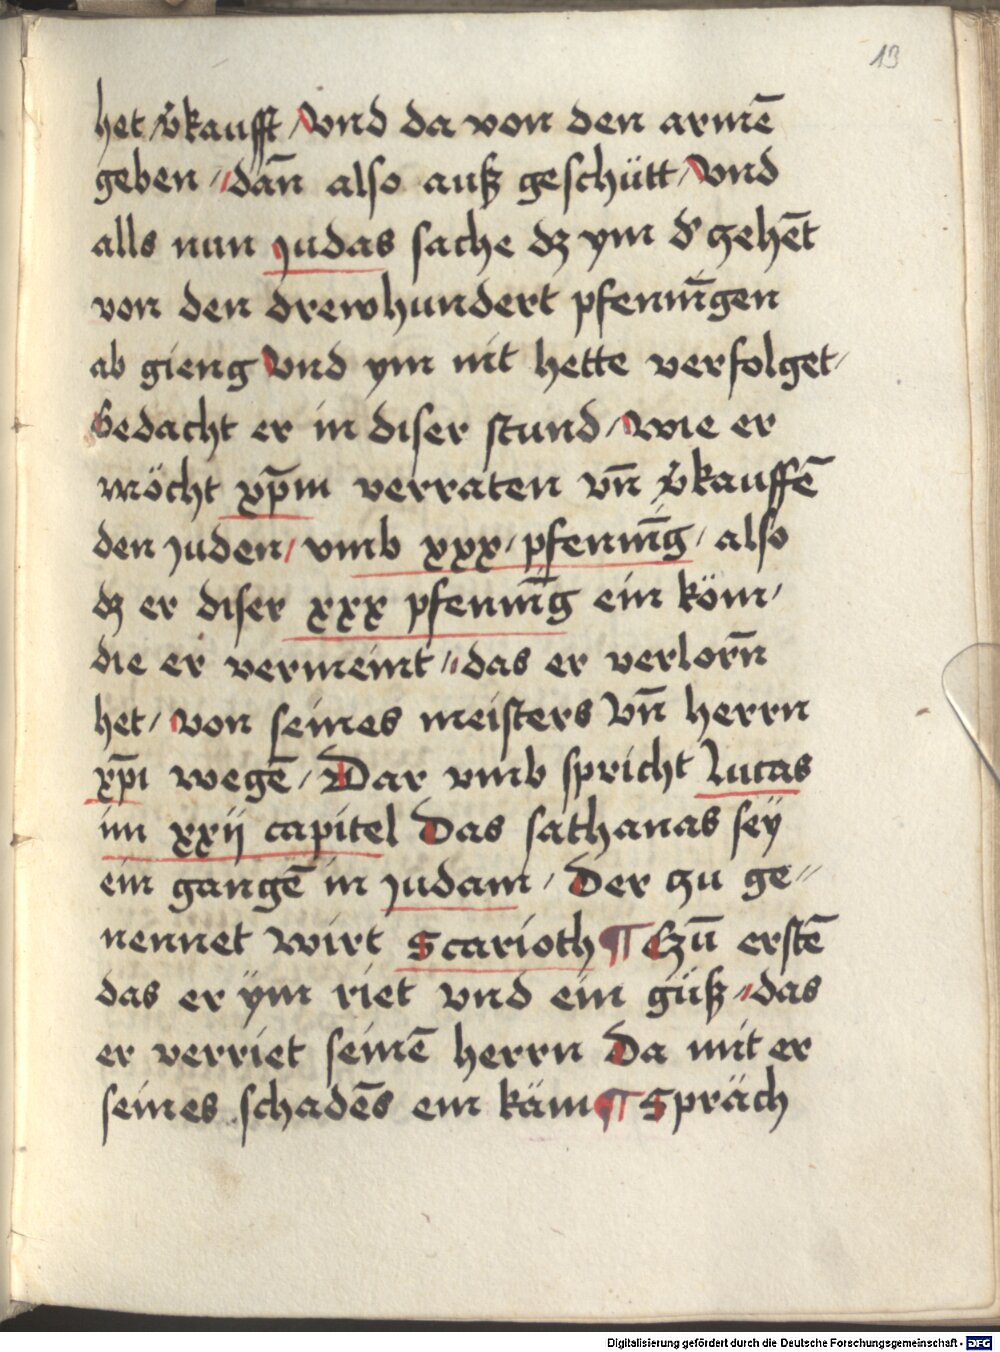 13
het / v̄kaufft / Vnd da von den armē
geben // dan̄ also auß geschütt / Vnd
alls nun Judas sache dz ym d' zehēt
von den drewhundert pfenni̅gen
ab gieng Vnd ym nit hette verfolget /
Gedacht er in diser stund / wie er
möcht xp̄m verraten vn̄ v̄kauffē
den Juden / vmb xxx / pfenni̅g / also
dz er diser xxx pfenni̅g ein köm /
die er vermeint // das er verlorn̄
het / von seines meisters Vn̄ herrn
xp̄i wegē / Dar vmb spricht Lucas
im xxij capitel Das sathanas seÿ
ein gangē in Judam / Der zu ge//
nennet wirt Scarioth ¶ Czū erstē
das er ÿm riet vnd ein güß // das
er verriet seinē herrn Da mit er
seines schadēs ein käm ¶ Spräch
Digitalisierung gefördert durch die Deutsche Forschungsgemeinschaft - DFG